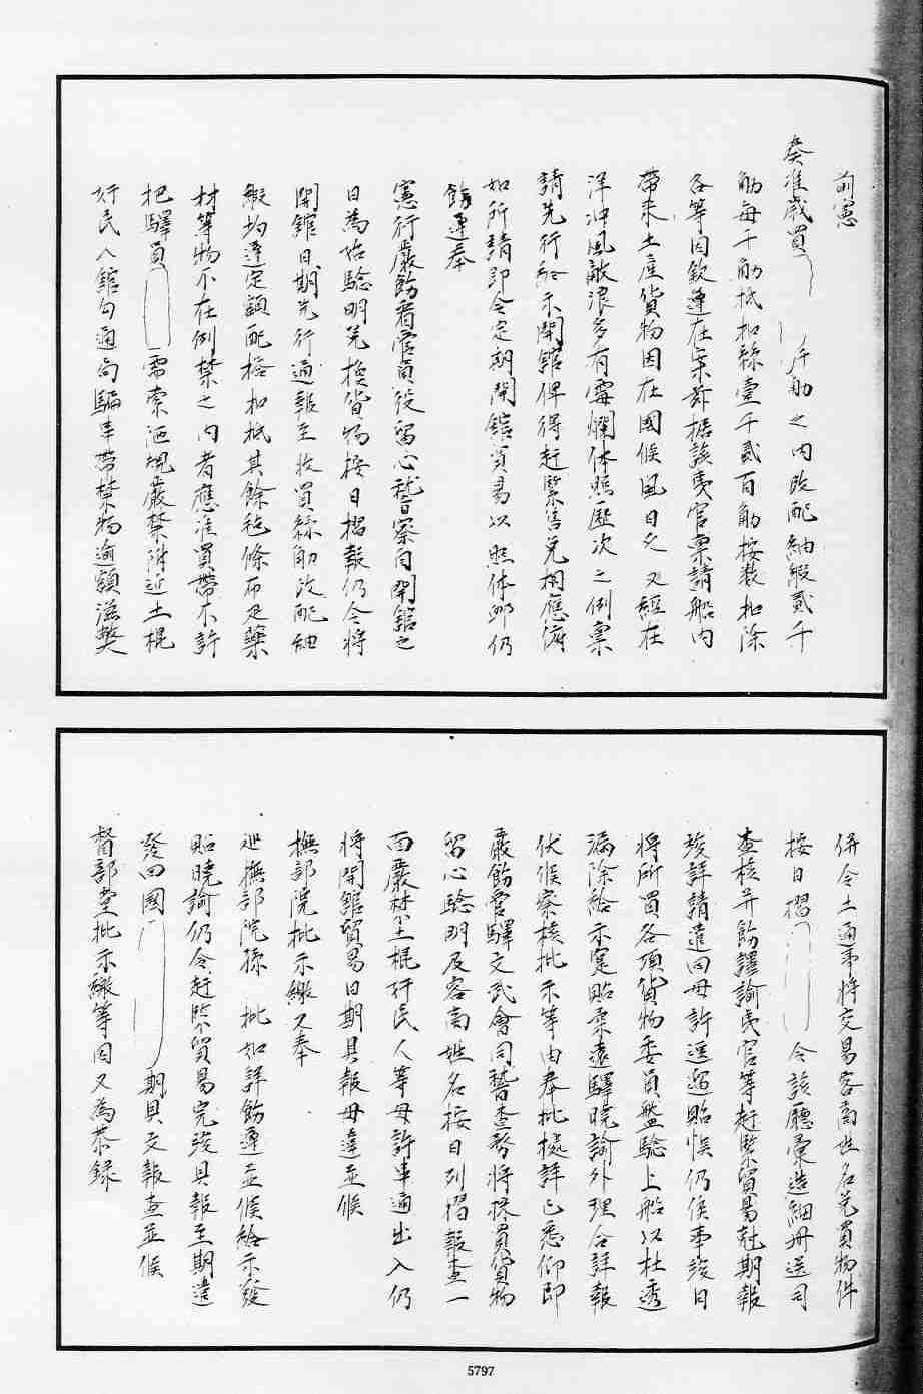 前憲
奏准歳買
斤觔之内改配紬緞貳千
觔每千觔抵扣絲壹千貳百觔按裝扣除
各等因欽遵在案玆據該夷官稟請船内
帶来土產貨物因在國候風日久又經在
洋冲風敵浪多有霉爛体照歷次之例稟
請先行給示開館俾得赶緊售兌相應俯
如所請即令定期開館貿易以照体卹仍
飭遵奉
憲行嚴飭看官員役留心稽察自開館之
日為始驗明兌換貨物按日摺報仍令將
開館日期先行通報至收買絲觔改配紬
緞均遵定額配搭扣抵其餘毡條布疋藥
材等物不在例禁之内者應准買帶不許
把驛員
需索洒規嚴禁附近土棍
奸民入館勾通局騙串帶禁物逾額滋弊
併令土通事將交易客商姓名兌買物件
按日摺
令該廳彙造細冊送司
查核并飭譯諭夷官等赶緊貿易尅期報
竣詳請遣回毋許逗遛貽悮仍俟事竣日
將所買各項貨物委員盤驗上船以杜透
漏除給示寔貼柔遠驛曉諭外理合詳報
伏候察核批示等由奉批據詳已悉仰即
嚴飭官驛文武會同稽查務將採買貨物
留心驗明及客商姓名按日列摺報查一
面嚴禁土棍奸民人等毋許串通出入仍
將開館貿易日期具報毋違並候
撫部院批示繳又奉
巡撫部院孫 批如詳飭遵並候給示發
貼曉諭仍令赶緊貿易完竣具報至期遣
發回國
期具文報查並候
督部堂批示繳等因又為恭錄
5797